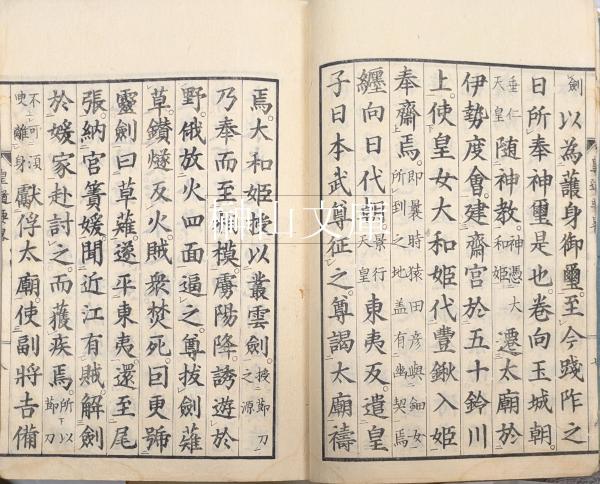 劍 以為護身御璽至今踐阼之
日所奉神璽是也卷向玉城朝
垂仁天皇 随神教 神憑大和姫 遷太廟於
伊勢度會建齋宮於五十鈴川
上使皇女大和姫代豐鍬入姫
奉齋焉 即曩時猿田彦與鈿女所到之地蓋有幽契焉
纏向日代朝 景行天皇 東夷反遣皇
子日本武尊征之尊謁太廟禱
焉大和姫授以叢雲劍 授節刀之源
乃奉而至相模虜陽降誘遊於
野俄放火四面逼之尊拔劍薙
草鑽燧反火賊衆焚死因更號
靈劍曰草薙遂平東夷還至尾
張納宮簀媛聞近江有賊解劍
於媛家赴討之而獲疾焉 所以節刀
不可須臾離身 獻俘太廟使副將吉備
皇道
榊山文庫